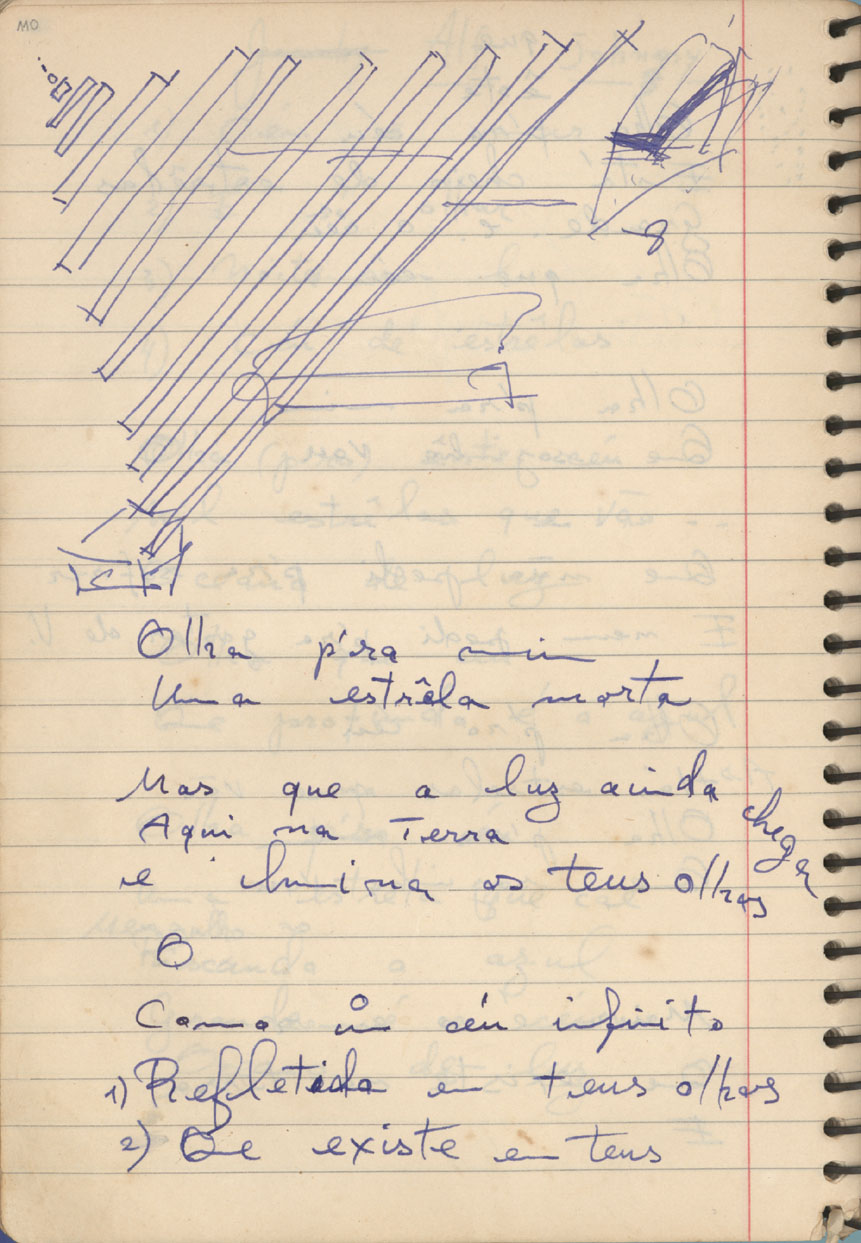 MO
Olha p'ra mim
Uma estrêla morta
Mas que a luz ainda chega
Aqui na Terra
e ilumina os teus olhos
O
Como um céu infinito
1) Refletida em teus olhos
2) Que existe em teus